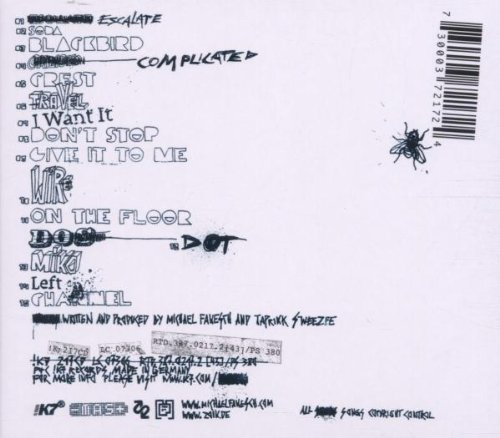 01 ESCALATE
02 SODA
03 BLACKBIRD
04 COMPLICATED
05 CREST
06 TRAVEL
07 I Want It
08 DON'T STOP
09 GIVE IT TO ME
10 WIRE
11 ON THE FLOOR
12 DOT
13 MIKO
14 Left
15 CHANNEL
WRITTEN AND PRODUCED BY MICHAEL FAKESCH AND TAPRIKK SWEEZEE
!K7217CD LC 07306 RTD.387.0217.2[43]/PS 380
!K7 217CD LC 07306 RTD 387.0217.2 [43]/PS 380
!K7 RECORDS MADE IN GERMANY
FOR MORE INFO PLEASE VISIT WWW.K7.COM/
!K7®
WWW.MICHAELFAKESCH.COM
ALL SONGS COPYRIGHT CONTROL
7 30003 72172 4